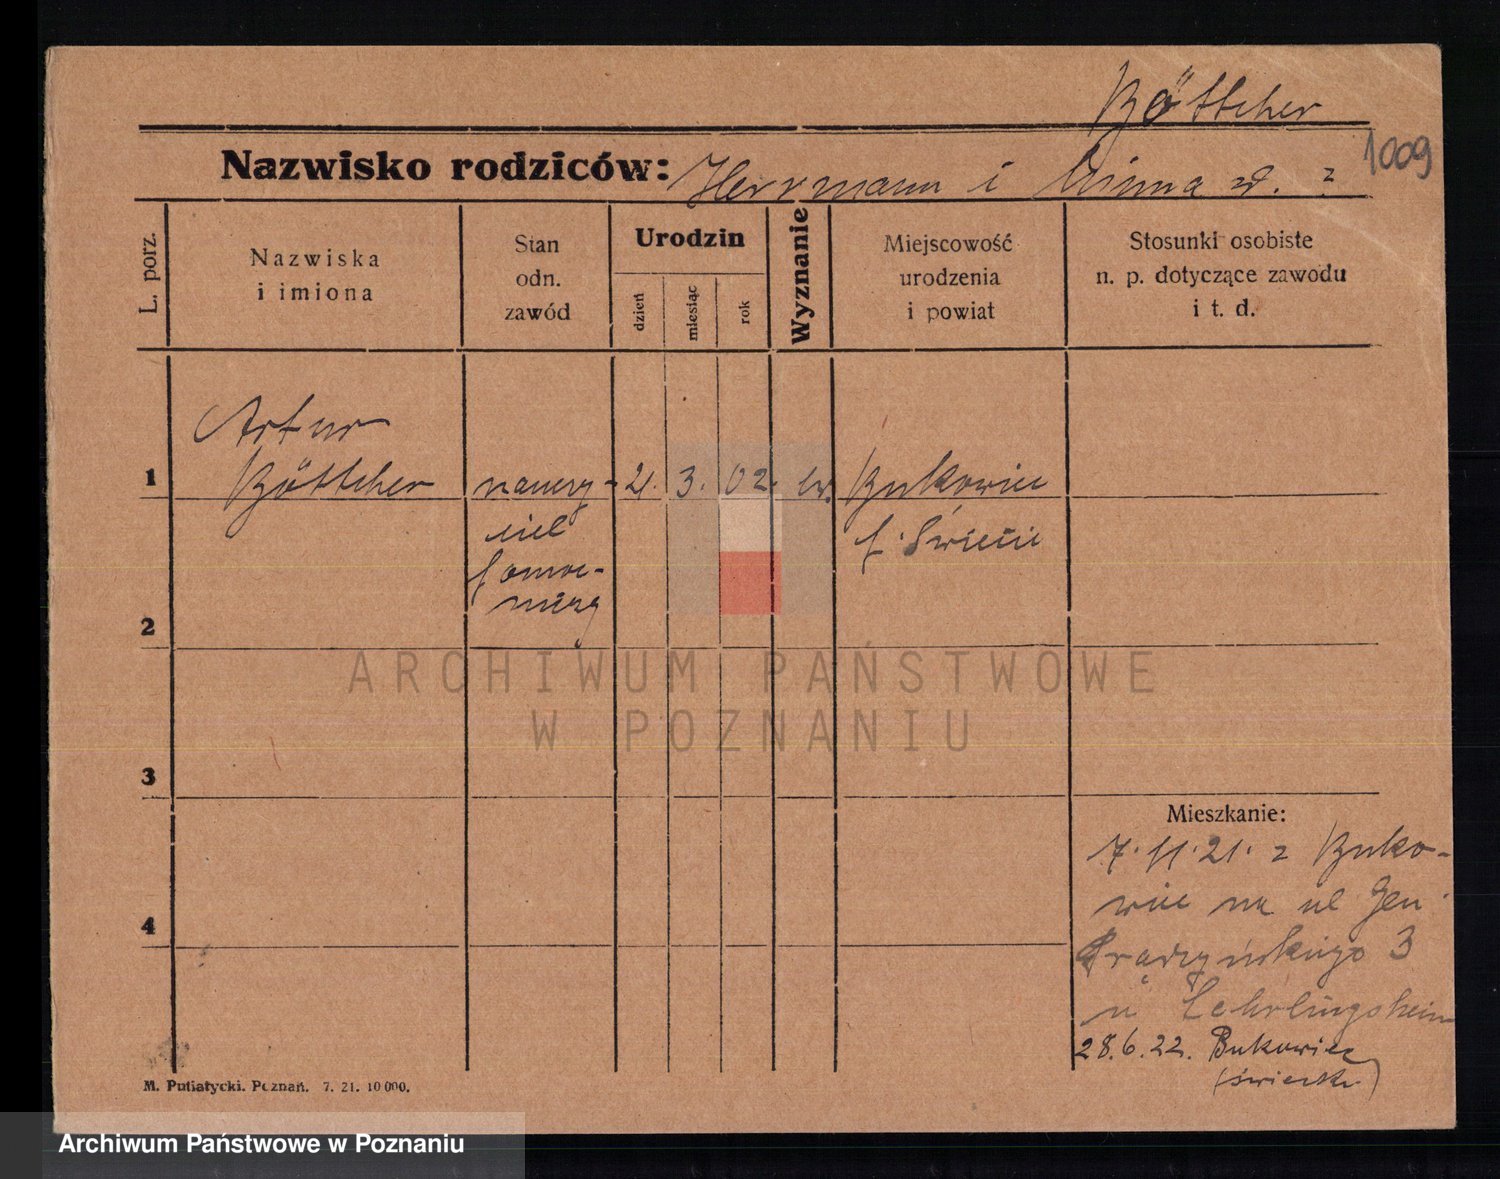 Böttcher
1009
Nazwisko rodziców: Herrmann i
L. porz.
Nazwiska
i imiona
Stan
odn.
zawód
Urodzin
dzień
miesiąc
rok
Wyznanie
Miejscowość
urodzenia
i powiat
Stosunki osobiste
n. p. dotyczące zawodu
i t. d.
Artur
1 Böttcher
nauczy-
ciel
pomoc-
niczy
21. 3. 02. ew.
Bukowiec
p. Świecie
2
ARCHIWUM PAŃSTWOWE
W POZNANIU
3
Mieszkanie:
7. 11. 21. z Buko-
wiec na ul Gen
Prądzyńskiego 3
u Lehrlingsheim
28. 6. 22. Bukowiec
4
M. Putiatycki. Poznań. 7. 21. 10 000.
Archiwum Państwowe w Poznaniu